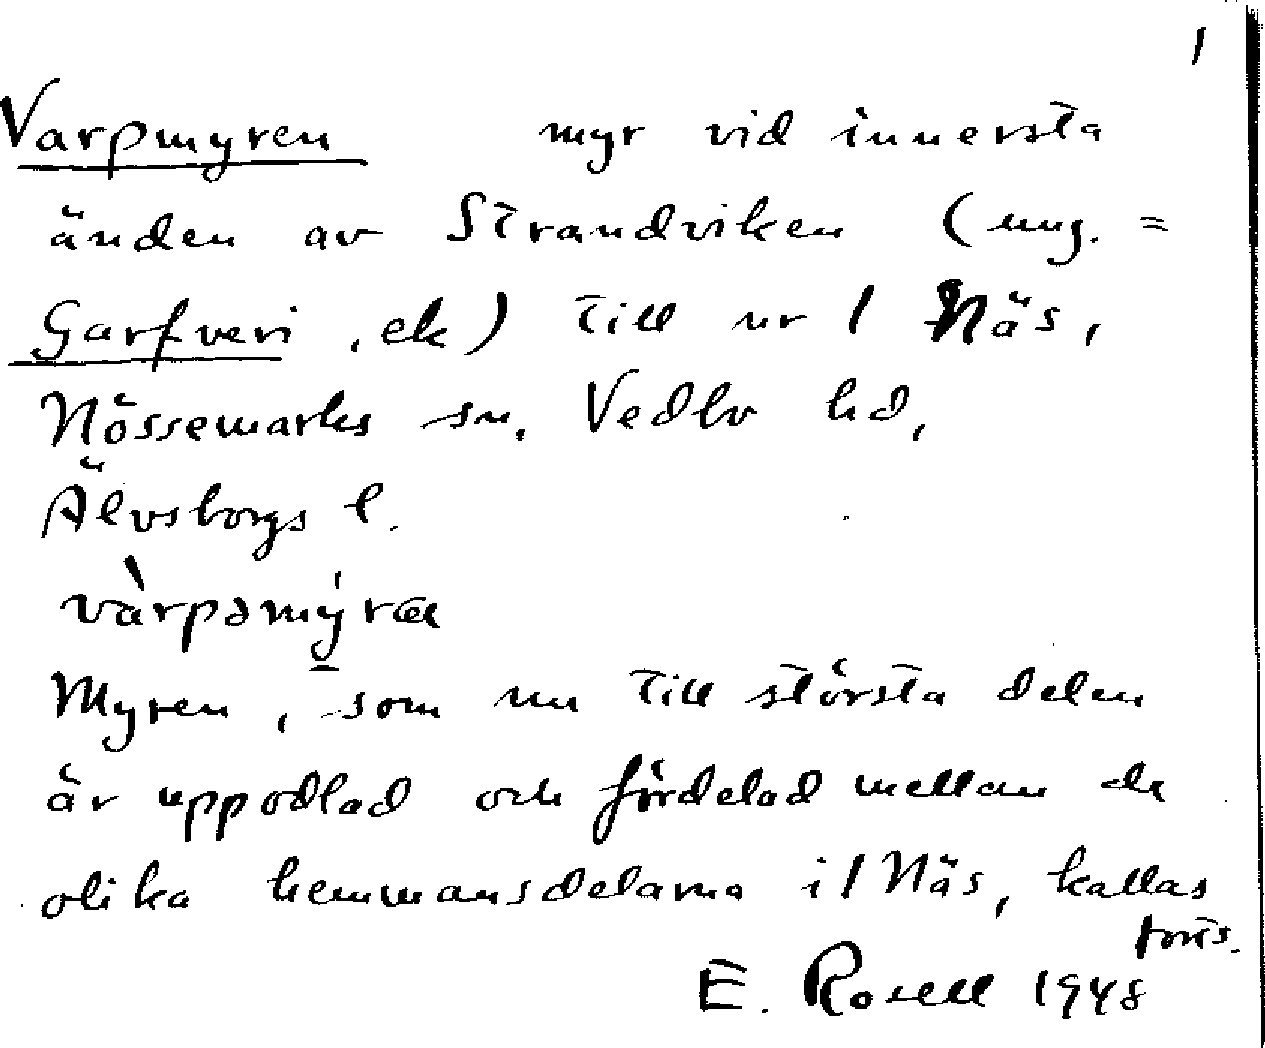 1
Varpmyren myr vid innersta
änden av Strandviken (ung. =
Garfveri, ek) till nr 1 Näs,
Nössemarks sn. Vedbo hd,
Älvsborgs l.
vàrpəmýra
Myren, som nu till största delen
är uppodlad och fördelad mellan de
olika hemmansdelarna i 1 Näs, kallas
forts.
E. Rosell 1948